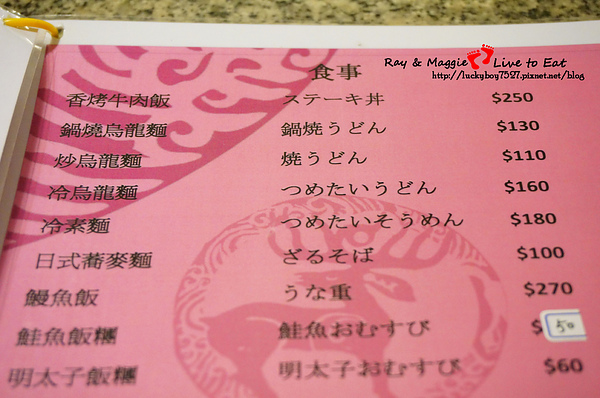 Ray & Maggie Live to Eat
http://luckyboy7527.pixnet.net/blog
食事
香烤牛肉飯 ステーキ丼 $250
鍋燒烏龍麵 鍋焼うどん $130
炒烏龍麵 焼うどん $110
冷烏龍麵 つめたいうどん $160
冷素麵 つめたいそうめん $180
日式蕎麥麵 ざるそば $100
鰻魚飯 うな重 $270
鮭魚飯糰 鮭魚おむすび $50
明太子飯糰 明太子おむすび $60